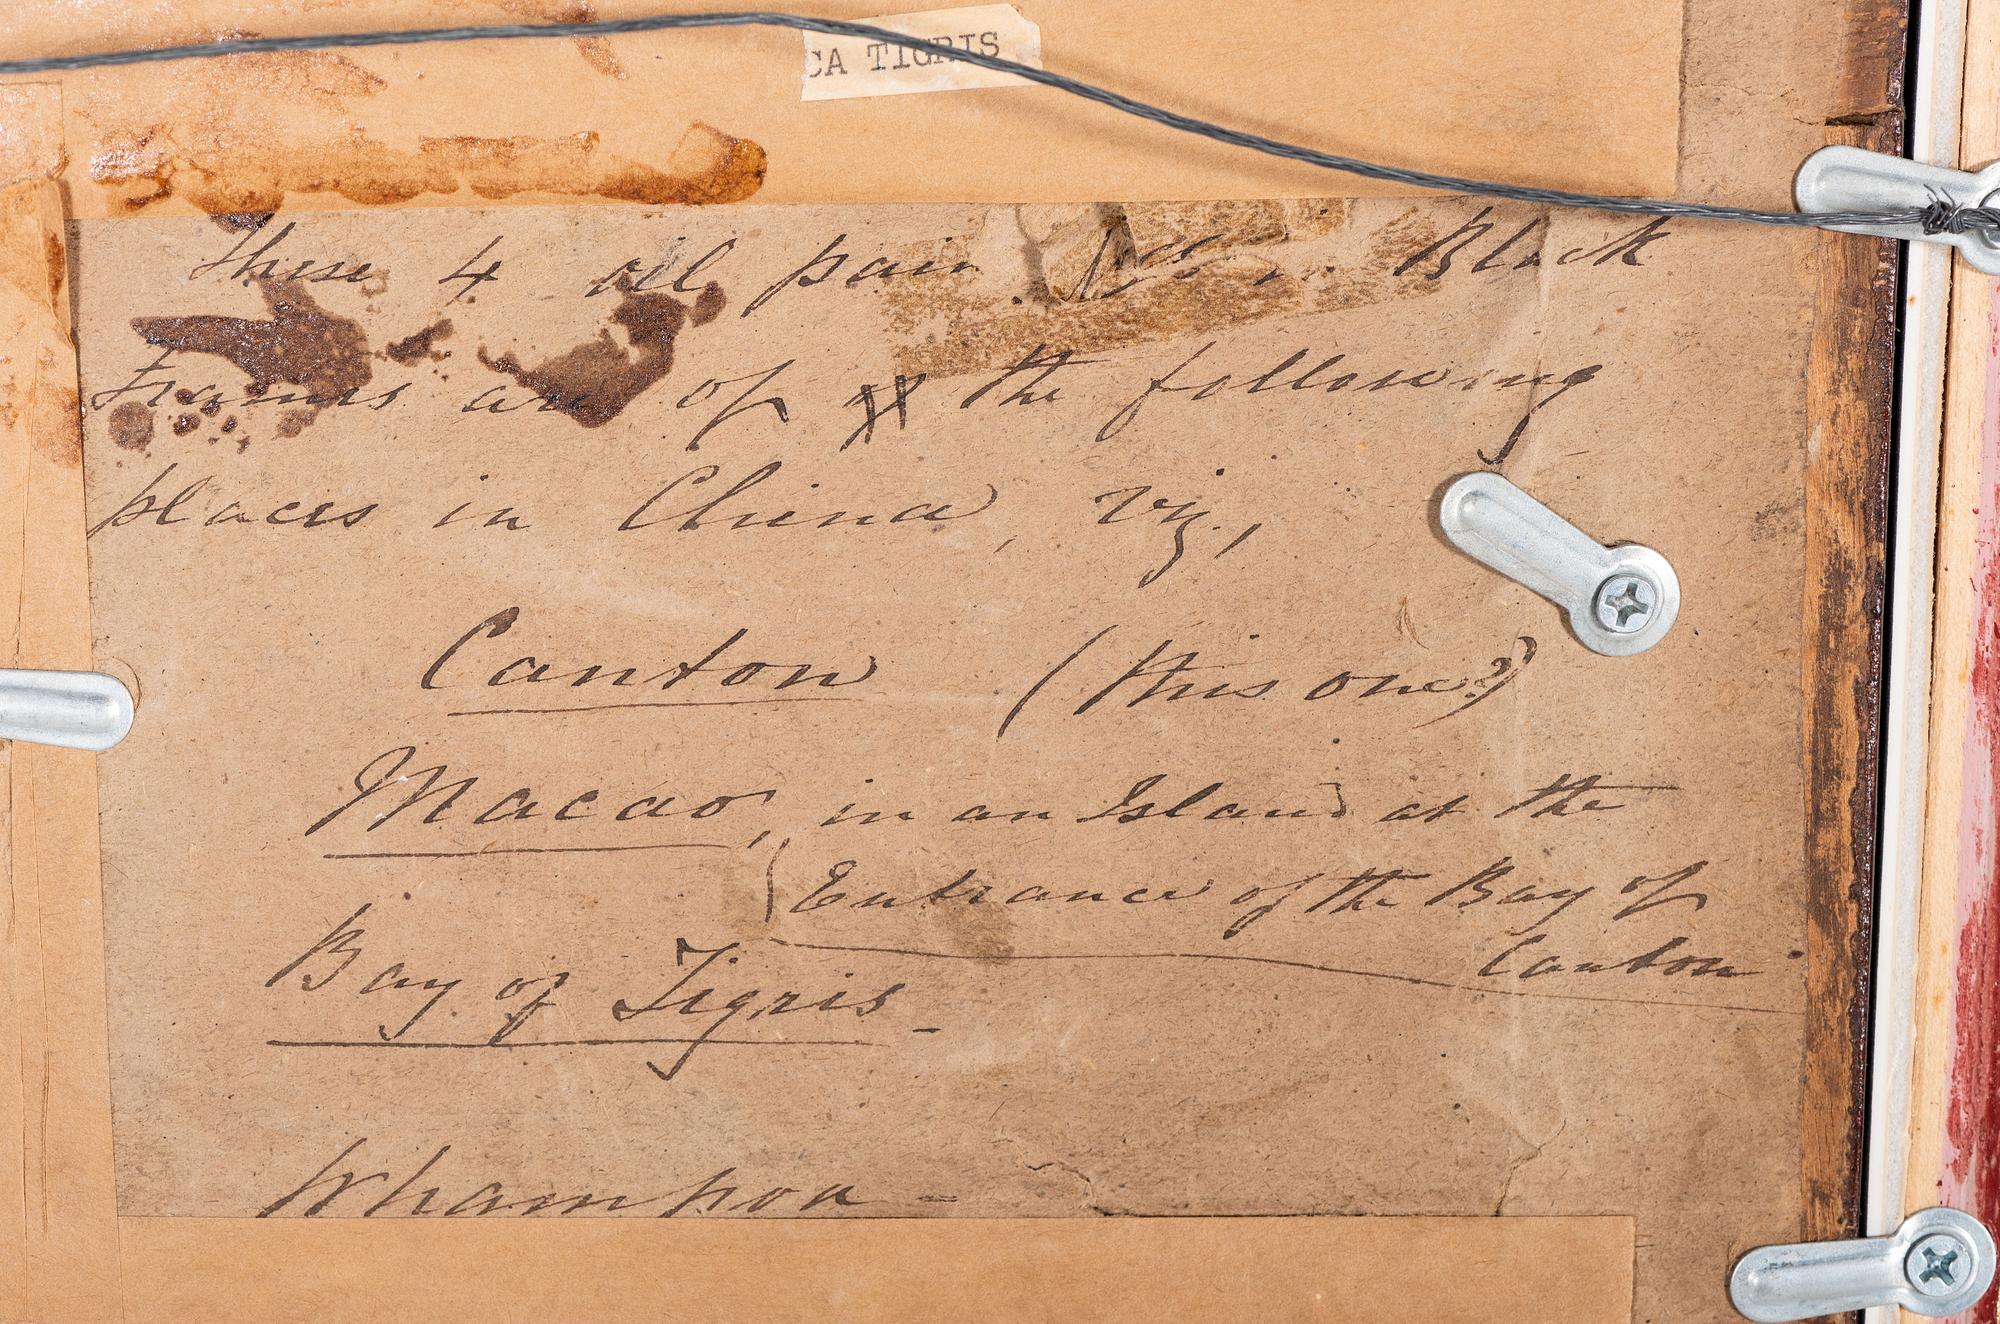 CA TIGRIS
These 4 oil in Black
Frames are of the following
places in China, viz,
Canton (this one?)
Macao, in an Island at the
Entrance of the Bay of
Canton
Bay of Tigris -
Whampoa -